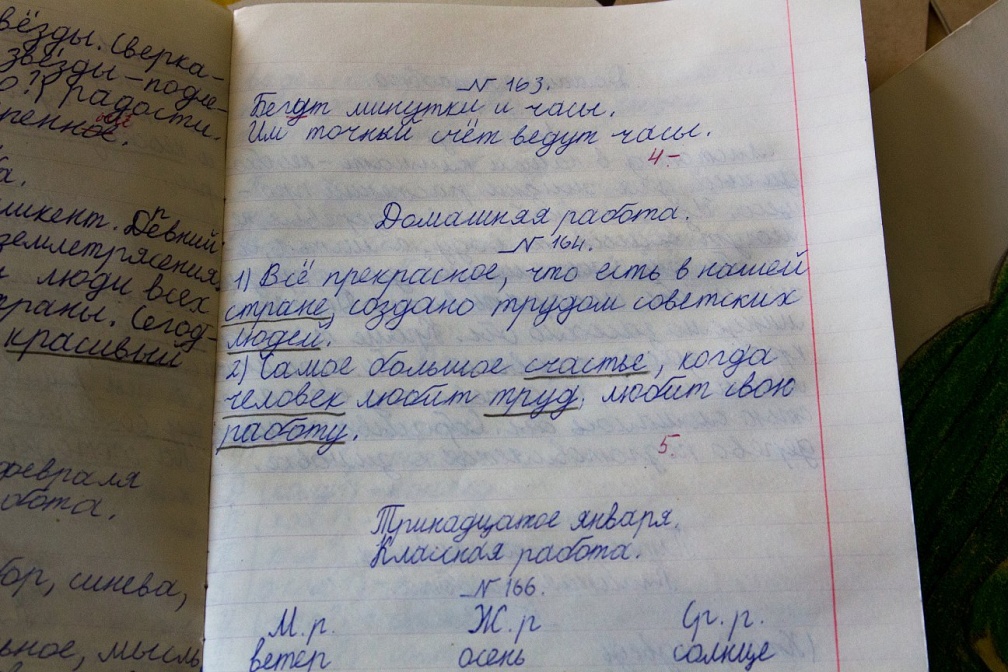 вёзды. Сверка-
звёзды – подле-
О?К радости.
пенное.
а.
икент. Древний
землетрясения.
люди всех
траны. Сегод-
красивый
февраля
бота.
бор, синева,
ьное, мысль,
N 163.
Бегут минутки и часы.
Им точный счёт ведут часы.
4.-
Домашняя работа.
N 164.
1) Всё прекрасное, что есть в нашей
стране, создано трудом советских
людей.
2) Самое большое счастье, когда
человек любит труд, любит свою
работу.
5.
Тринадцатое января.
Классная работа.
N 166.
М.р. Ж.р Ср.р.
ветер осень солнце